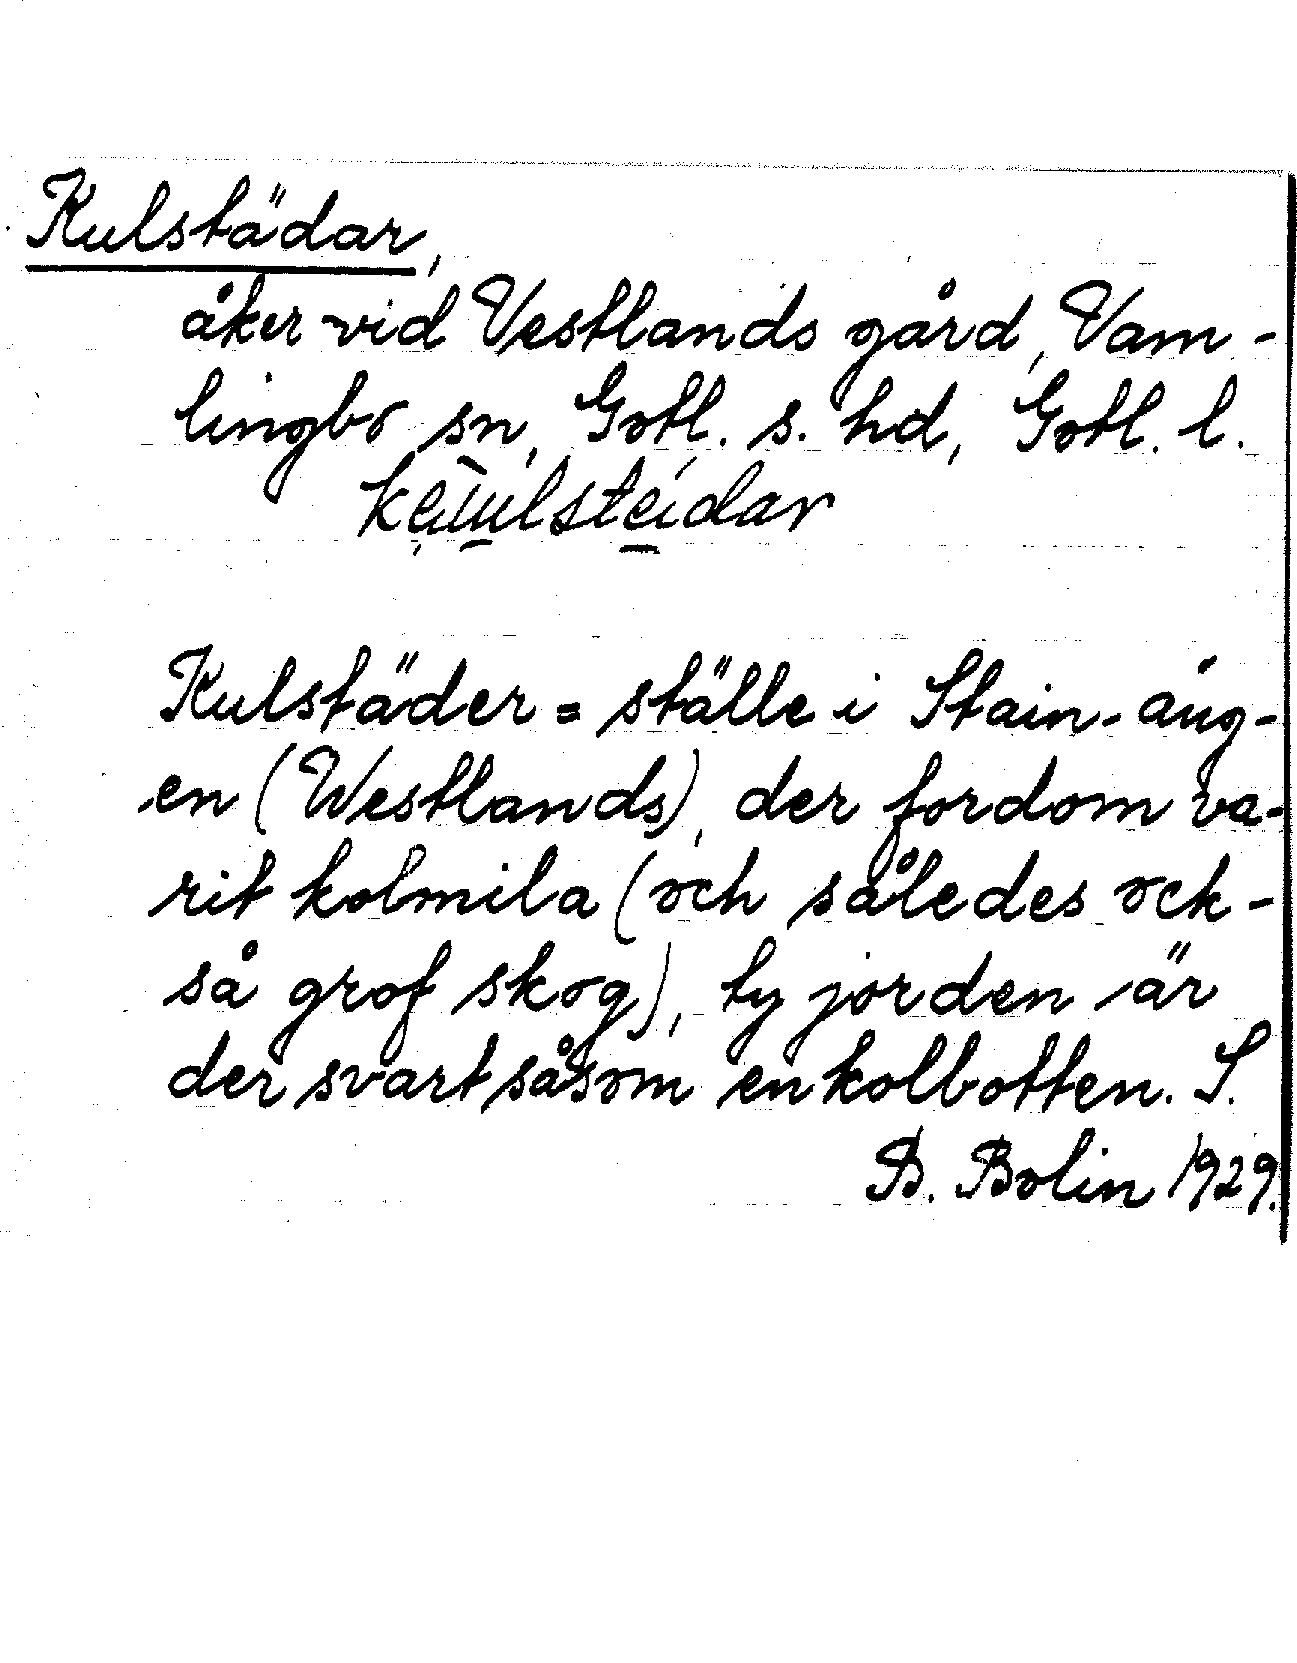 Kulstädar,
åker vid Vestlands gård, Vam-
lingbo sn, Gotl. s. hd, Gotl. l.
Kulstäder = ställe i Stain-äng-
en (Westlands), der fordom va-
rit kolmila (och således ock-
så grof skog), ty jorden är
der svart såsom en kolbotten. S.
B. Bolin 1929.